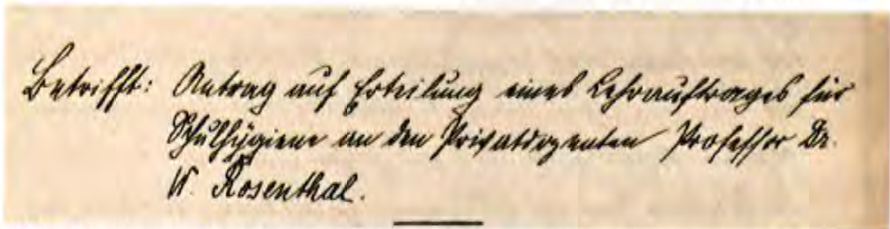 Betrifft: Antrag auf Erteilung eines Lehrauftrages für
Schulhygiene an den Privatdozenten Professor Dr.
W. Rosenthal.